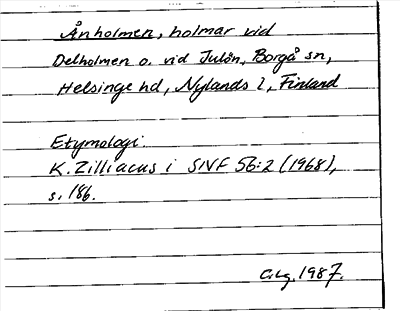 Ånholmen, holmar vid
Delholmen o. vid Julön, Borgå sn,
Helsinge hd, Nylands l, Finland
Etymologi:
K. Zilliacus i SNF 56:2 (1968),
s. 186.
Aug. 1987.